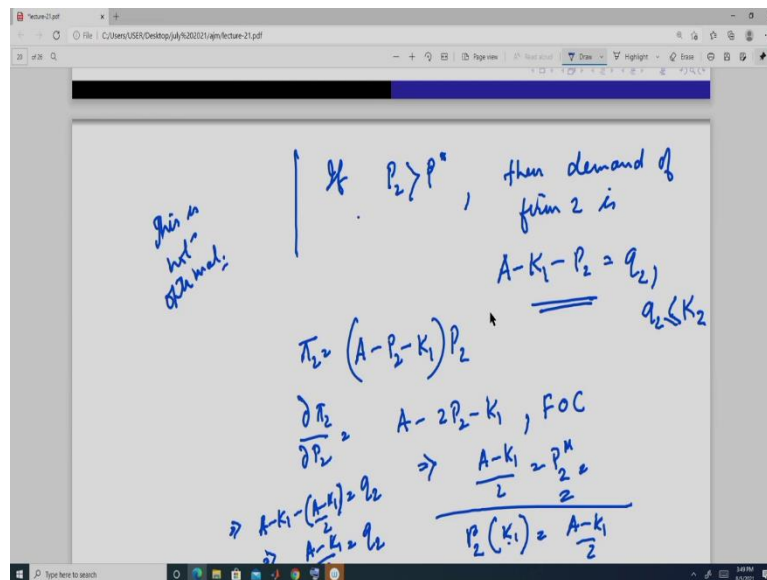 *lecture-21.pdf
File | C:/Users/USER/Desktop/july%202021/ajm/lecture-21.pdf
20 of 26
Page view Read aloud Draw Highlight Erase
If P₂ > P*, then demand of
firm 2 is
This is
not
optimal.
A-K₁-P₂ = q₂,
q₂ ≤ K₂
π₂ = (A-P₂-K₁)P₂
∂π₂/∂P₂ = A-2P₂-K₁, FOC
⇒ (A-K₁)/2 = P₂ᴹ
⇒ A-K₁-(A-K₁)/2 = q₂
⇒ (A-K₁)/2 = q₂
P₂(K₁) = (A-K₁)/2
Type here to search
3:49 PM